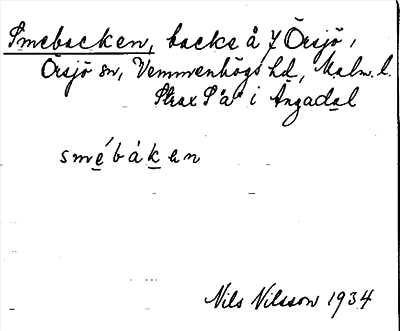 Smebacken, backe å 7 Örsjö,
Örsjö sn, Vemmenhögs hd, Malm. l.
Strax S "a" i Ängadal
smébákan
Nils Nilsson 1934